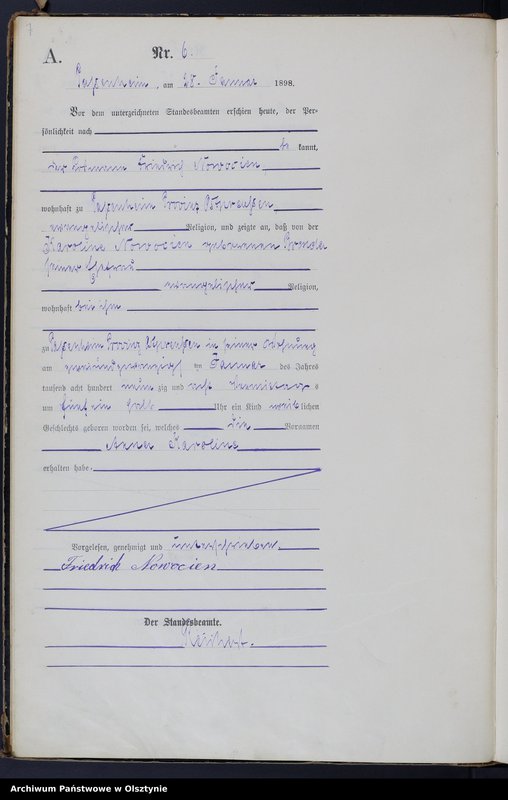 7
A.
Nr. 6.
Passenheim, am 28. Januar 1898.
Vor dem unterzeichneten Standesbeamten erschien heute, der Per-
sönlichkeit nach
be kannt,
der Friedrich Nowocien
wohnhaft zu Passenheim Provinz Ostpreußen
evangelischer Religion, und zeigte an, daß von der
Karoline Nowocien geborenen
seiner Ehefrau
evangelischer Religion,
wohnhaft bei ihm
zu Passenheim Provinz Ostpreußen in seiner Wohnung
am zweiundzwanzigsten Januar des Jahres
tausend acht hundert neun zig und acht Vormittag s
um fünf ein halb Uhr ein Kind weib lichen
Geschlechts geboren worden sei, welches die Vornamen
Anna Karoline
erhalten habe.
Vorgelesen, genehmigt und unterschrieben.
Friedrich Nowocien
Der Standesbeamte.
Archiwum Państwowe w Olsztynie